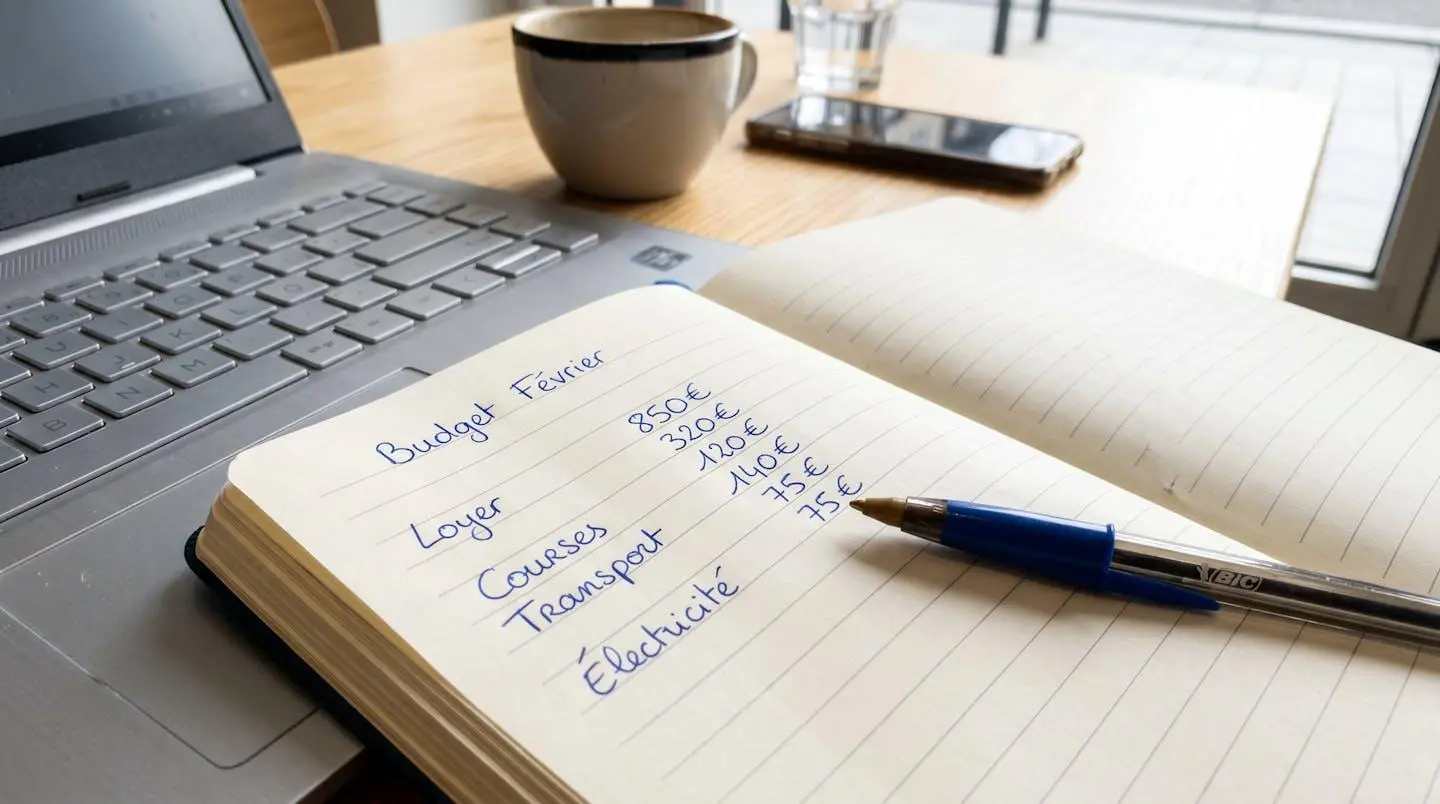 Budget Février
Loyer
Courses
Transport
Électricité
850€
320€
120€
140€
75€
75€
BIC